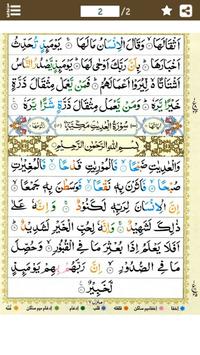 2 /2
اَثْقَالَهَا ۙ وَقَالَ الْاِنْسَانُ مَا لَهَا ۚ يَوْمَئِذٍ تُحَدِّثُ
اَخْبَارَهَا ۙ بِاَنَّ رَبَّكَ اَوْحٰى لَهَا ؕ يَوْمَئِذٍ يَّصْدُرُ النَّاسُ
اَشْتَاتًا ۙ لِّيُرَوْا اَعْمَالَهُمْ ؕ فَمَنْ يَّعْمَلْ مِثْقَالَ ذَرَّةٍ
خَيْرًا يَّرَهٗ ؕ وَمَنْ يَّعْمَلْ مِثْقَالَ ذَرَّةٍ شَرًّا يَّرَهٗ
سُوْرَةُ الْعٰدِيٰتِ مَكِّيَّةٌ
بِسْمِ اللّٰهِ الرَّحْمٰنِ الرَّحِيْمِ
وَالْعٰدِيٰتِ ضَبْحًا ۙ فَالْمُوْرِيٰتِ قَدْحًا ۙ فَالْمُغِيْرٰتِ
صُبْحًا ۙ فَاَثَرْنَ بِهٖ نَقْعًا ۙ فَوَسَطْنَ بِهٖ جَمْعًا ۙ
اِنَّ الْاِنْسَانَ لِرَبِّهٖ لَكَنُوْدٌ ۚ وَاِنَّهٗ عَلٰى
ذٰلِكَ لَشَهِيْدٌ ۚ وَاِنَّهٗ لِحُبِّ الْخَيْرِ لَشَدِيْدٌ ؕ
اَفَلَا يَعْلَمُ اِذَا بُعْثِرَ مَا فِى الْقُبُوْرِ ۙ وَحُصِّلَ
مَا فِى الصُّدُوْرِ ۙ اِنَّ رَبَّهُمْ بِهِمْ يَوْمَئِذٍ
لَّخَبِيْرٌ